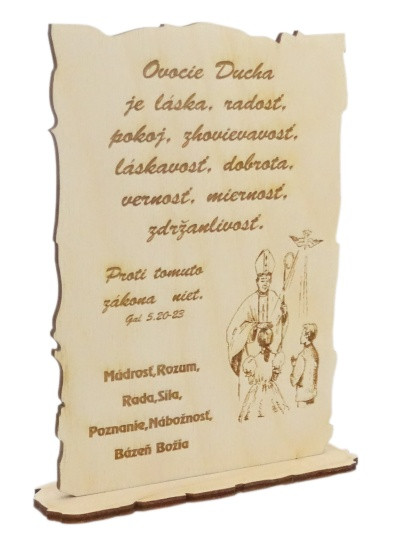 Ovocie Ducha
je láska, radosť,
pokoj, zhovievavosť,
láskavosť, dobrota,
vernosť, miernosť,
zdržanlivosť.
Proti tomuto
zákona niet.
Gal 5.20-23
Múdrosť,Rozum,
Rada,Sila,
Poznanie,Nábožnosť,
Bázeň Božia